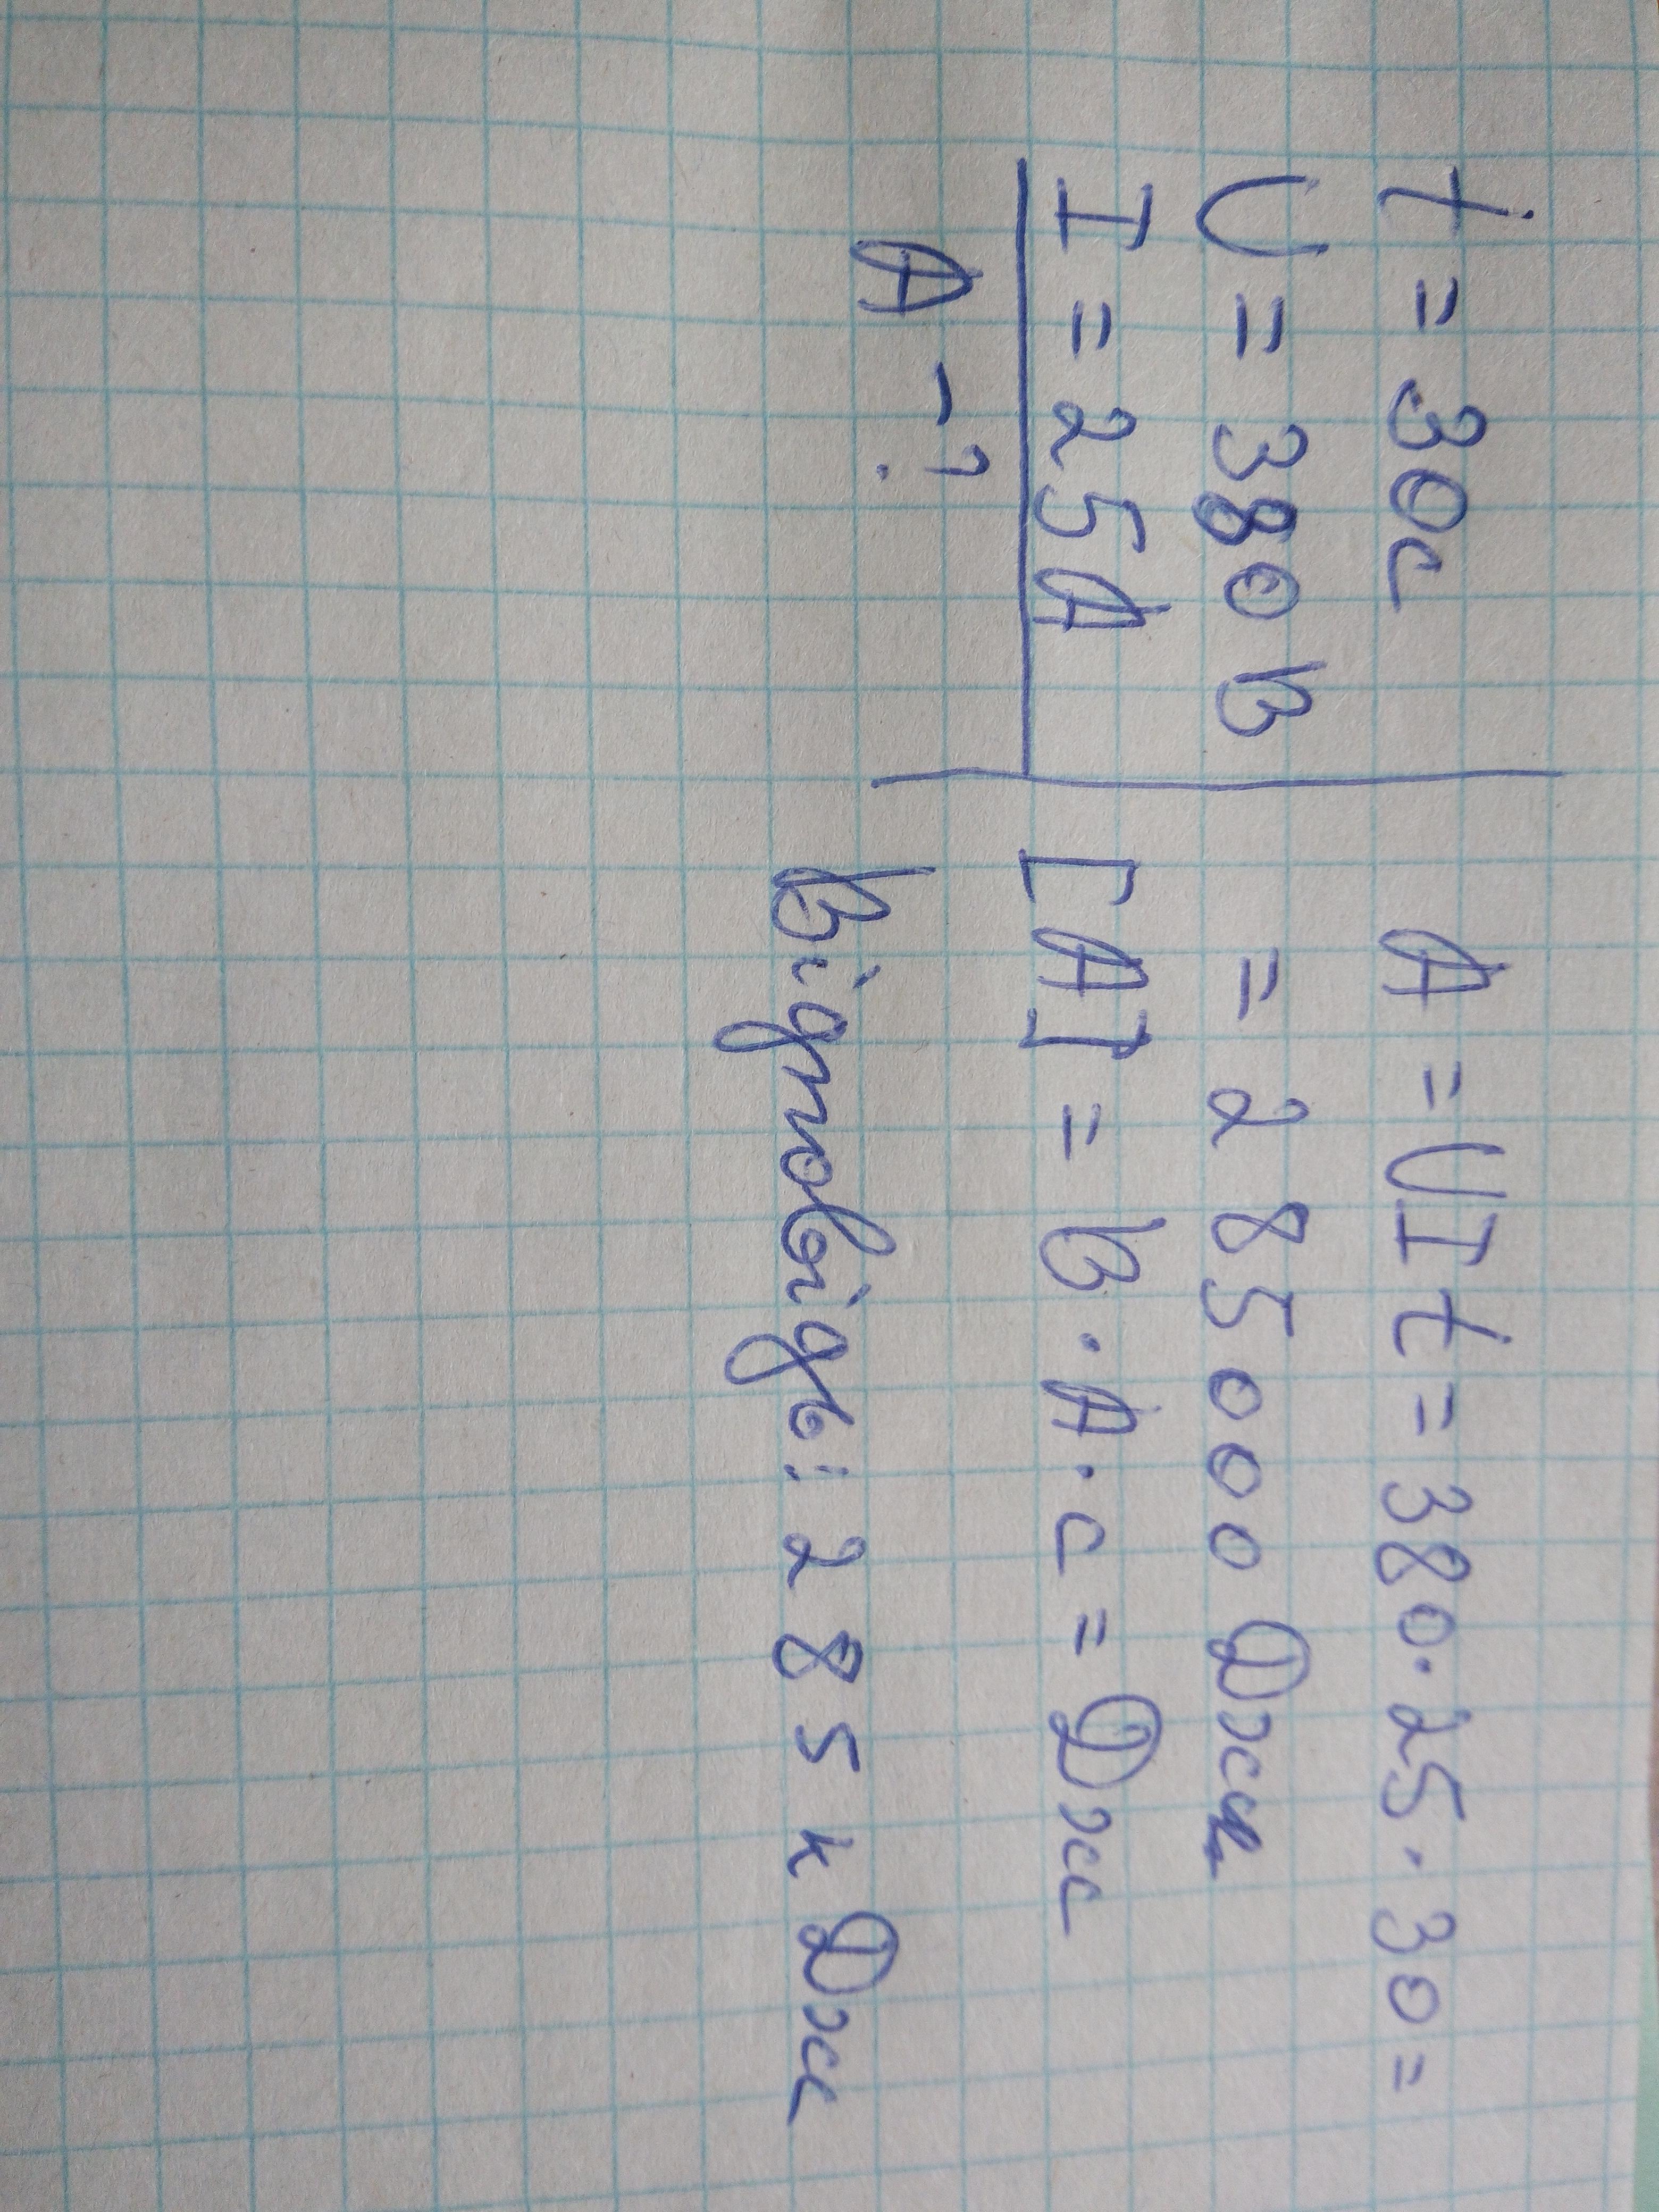 t = 30с
U = 380 В
I = 25А
А - ?
A = UIt = 380 · 25 · 30 =
= 285000 Дж
[A] = В · А · с = Дж
Відповідь: 285 кДж